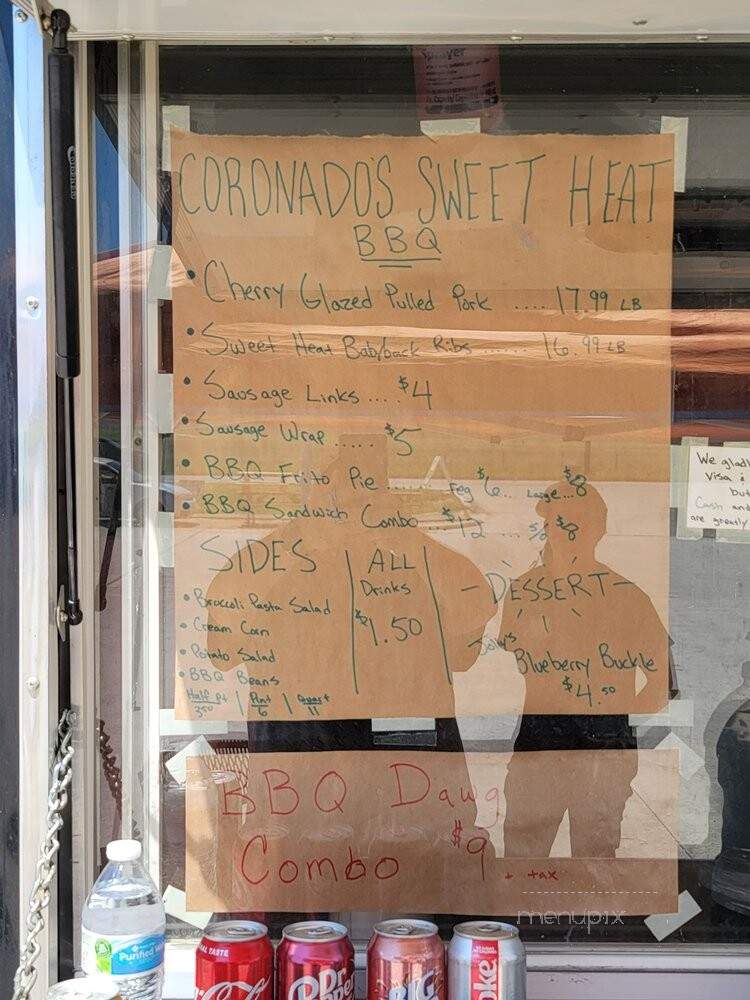 Sprayer
CORONADO'S SWEET HEAT
BBQ
• Cherry Glazed Pulled Pork .... 17.99 LB
• Sweet Heat Babyback Ribs ....... 16.99 LB
• Sausage Links .... $4
• Sausage Wrap ..... $5
• BBQ Frito Pie ....... reg $6... Large...$8
• BBQ Sandwich Combo ... $12 ... $8
SIDES
• Broccoli Pasta Salad
• Cream Corn
• Potato Salad
• BBQ Beans
Half Pt | Pint | Quart
3.50 6 11
ALL
Drinks
$1.50
- DESSERT -
Blueberry Buckle
$4.50
We gladly
Visa &
but
Cash and
are greatly
BBQ Dawg
Combo $9. + tax
menupix
Purified
AL TASTE
Coca
DR
Pepper
BIG
oke